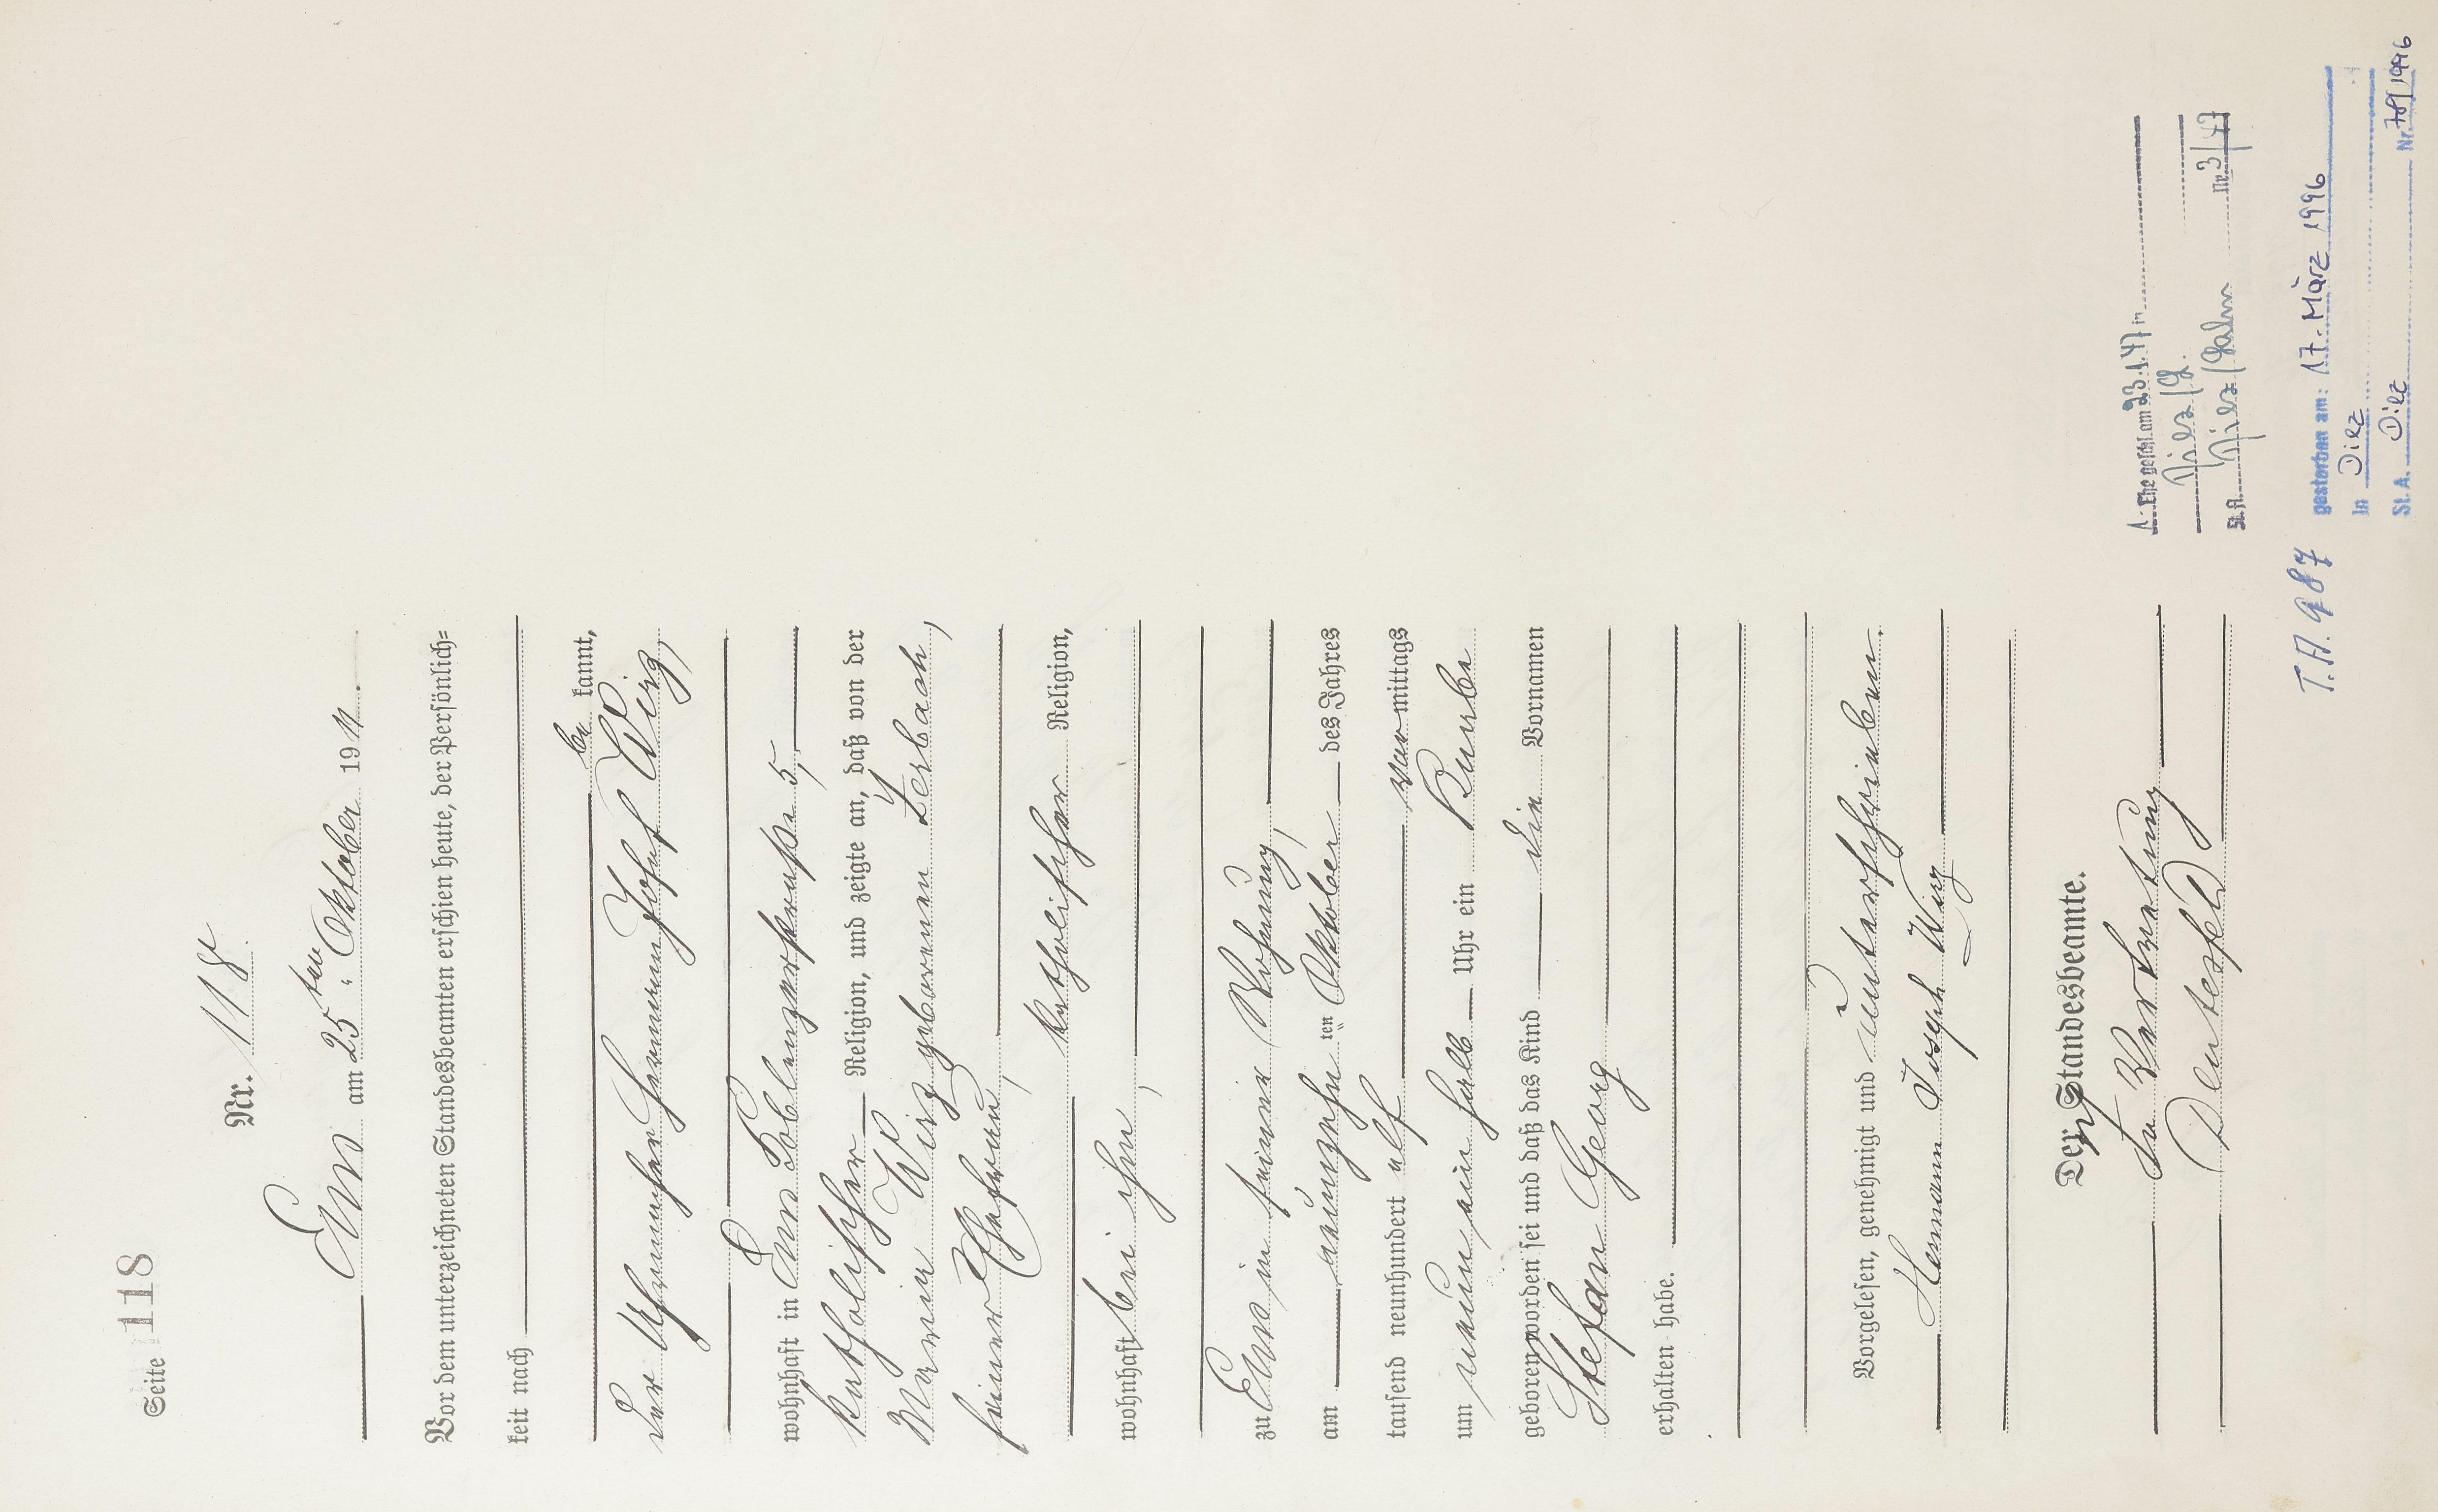 Seite 118
Nr. 118.
Ems am 25ten Oktober 1911.
Vor dem unterzeichneten Standesbeamten erschien heute, der Persönlich=
keit nach
be kannt,
der Uhrmacher Hermann Josef Wirg,
wohnhaft in Ems Coblenzerstraße 5,
katholischer Religion, und zeigte an, daß von der
Maria Wirg geborenen Lerbach,
seiner Ehefrau,
katholischer Religion,
wohnhaft bei ihm,
zu Ems in seiner Wohnung,
am neunzehnten Oktober des Jahres
tausend neunhundert elf vormittags
um neun ein halb Uhr ein Knabe
geboren worden sei und daß das Kind die Vornamen
Stefan Georg
erhalten habe.
Vorgelesen, genehmigt und unterschrieben.
Hermann Joseph Wirg
Der Standesbeamte.
In Vertretung
1. Ehe geschl. am 23.1.47 in
Diez/L.
St. A. Diez/Lahn Nr. 3/47
T.A. 987
gestorben am: 17. März 1996
in Diez
St. A. Diez Nr. 78/1996